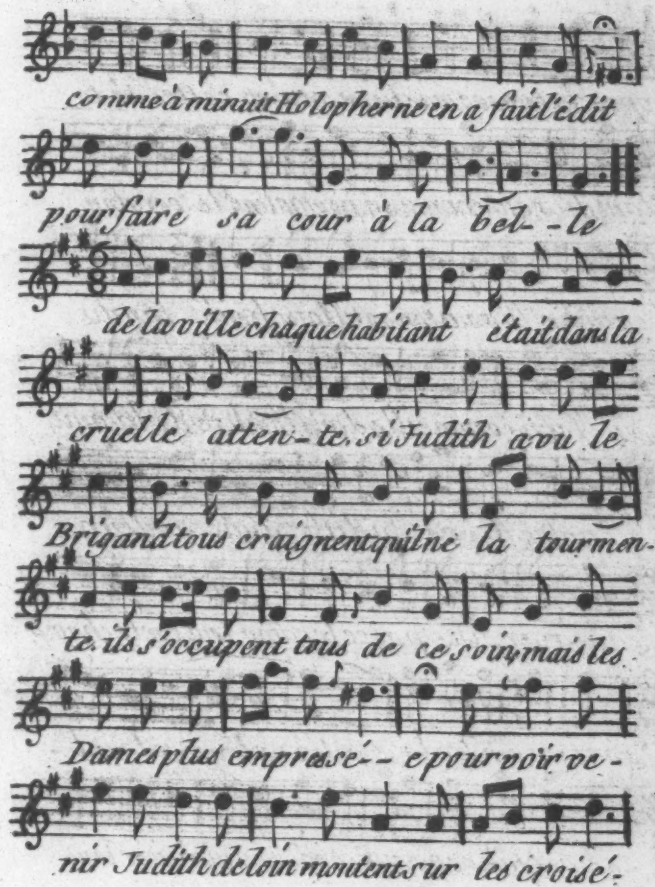 comme à minuit Holopherne en a fait l'édit
pour faire sa cour à la bel--le
6
8
de la ville chaque habitant était dans la
cruelle atten-te. si Judith a vu le
Brigand tous craignent qu'il ne la tourmen-
te. ils s'occupent tous de ce soin, mais les
Dames plus empressé--e pour voir ve-
nir Judith de loin montent sur les croisé-